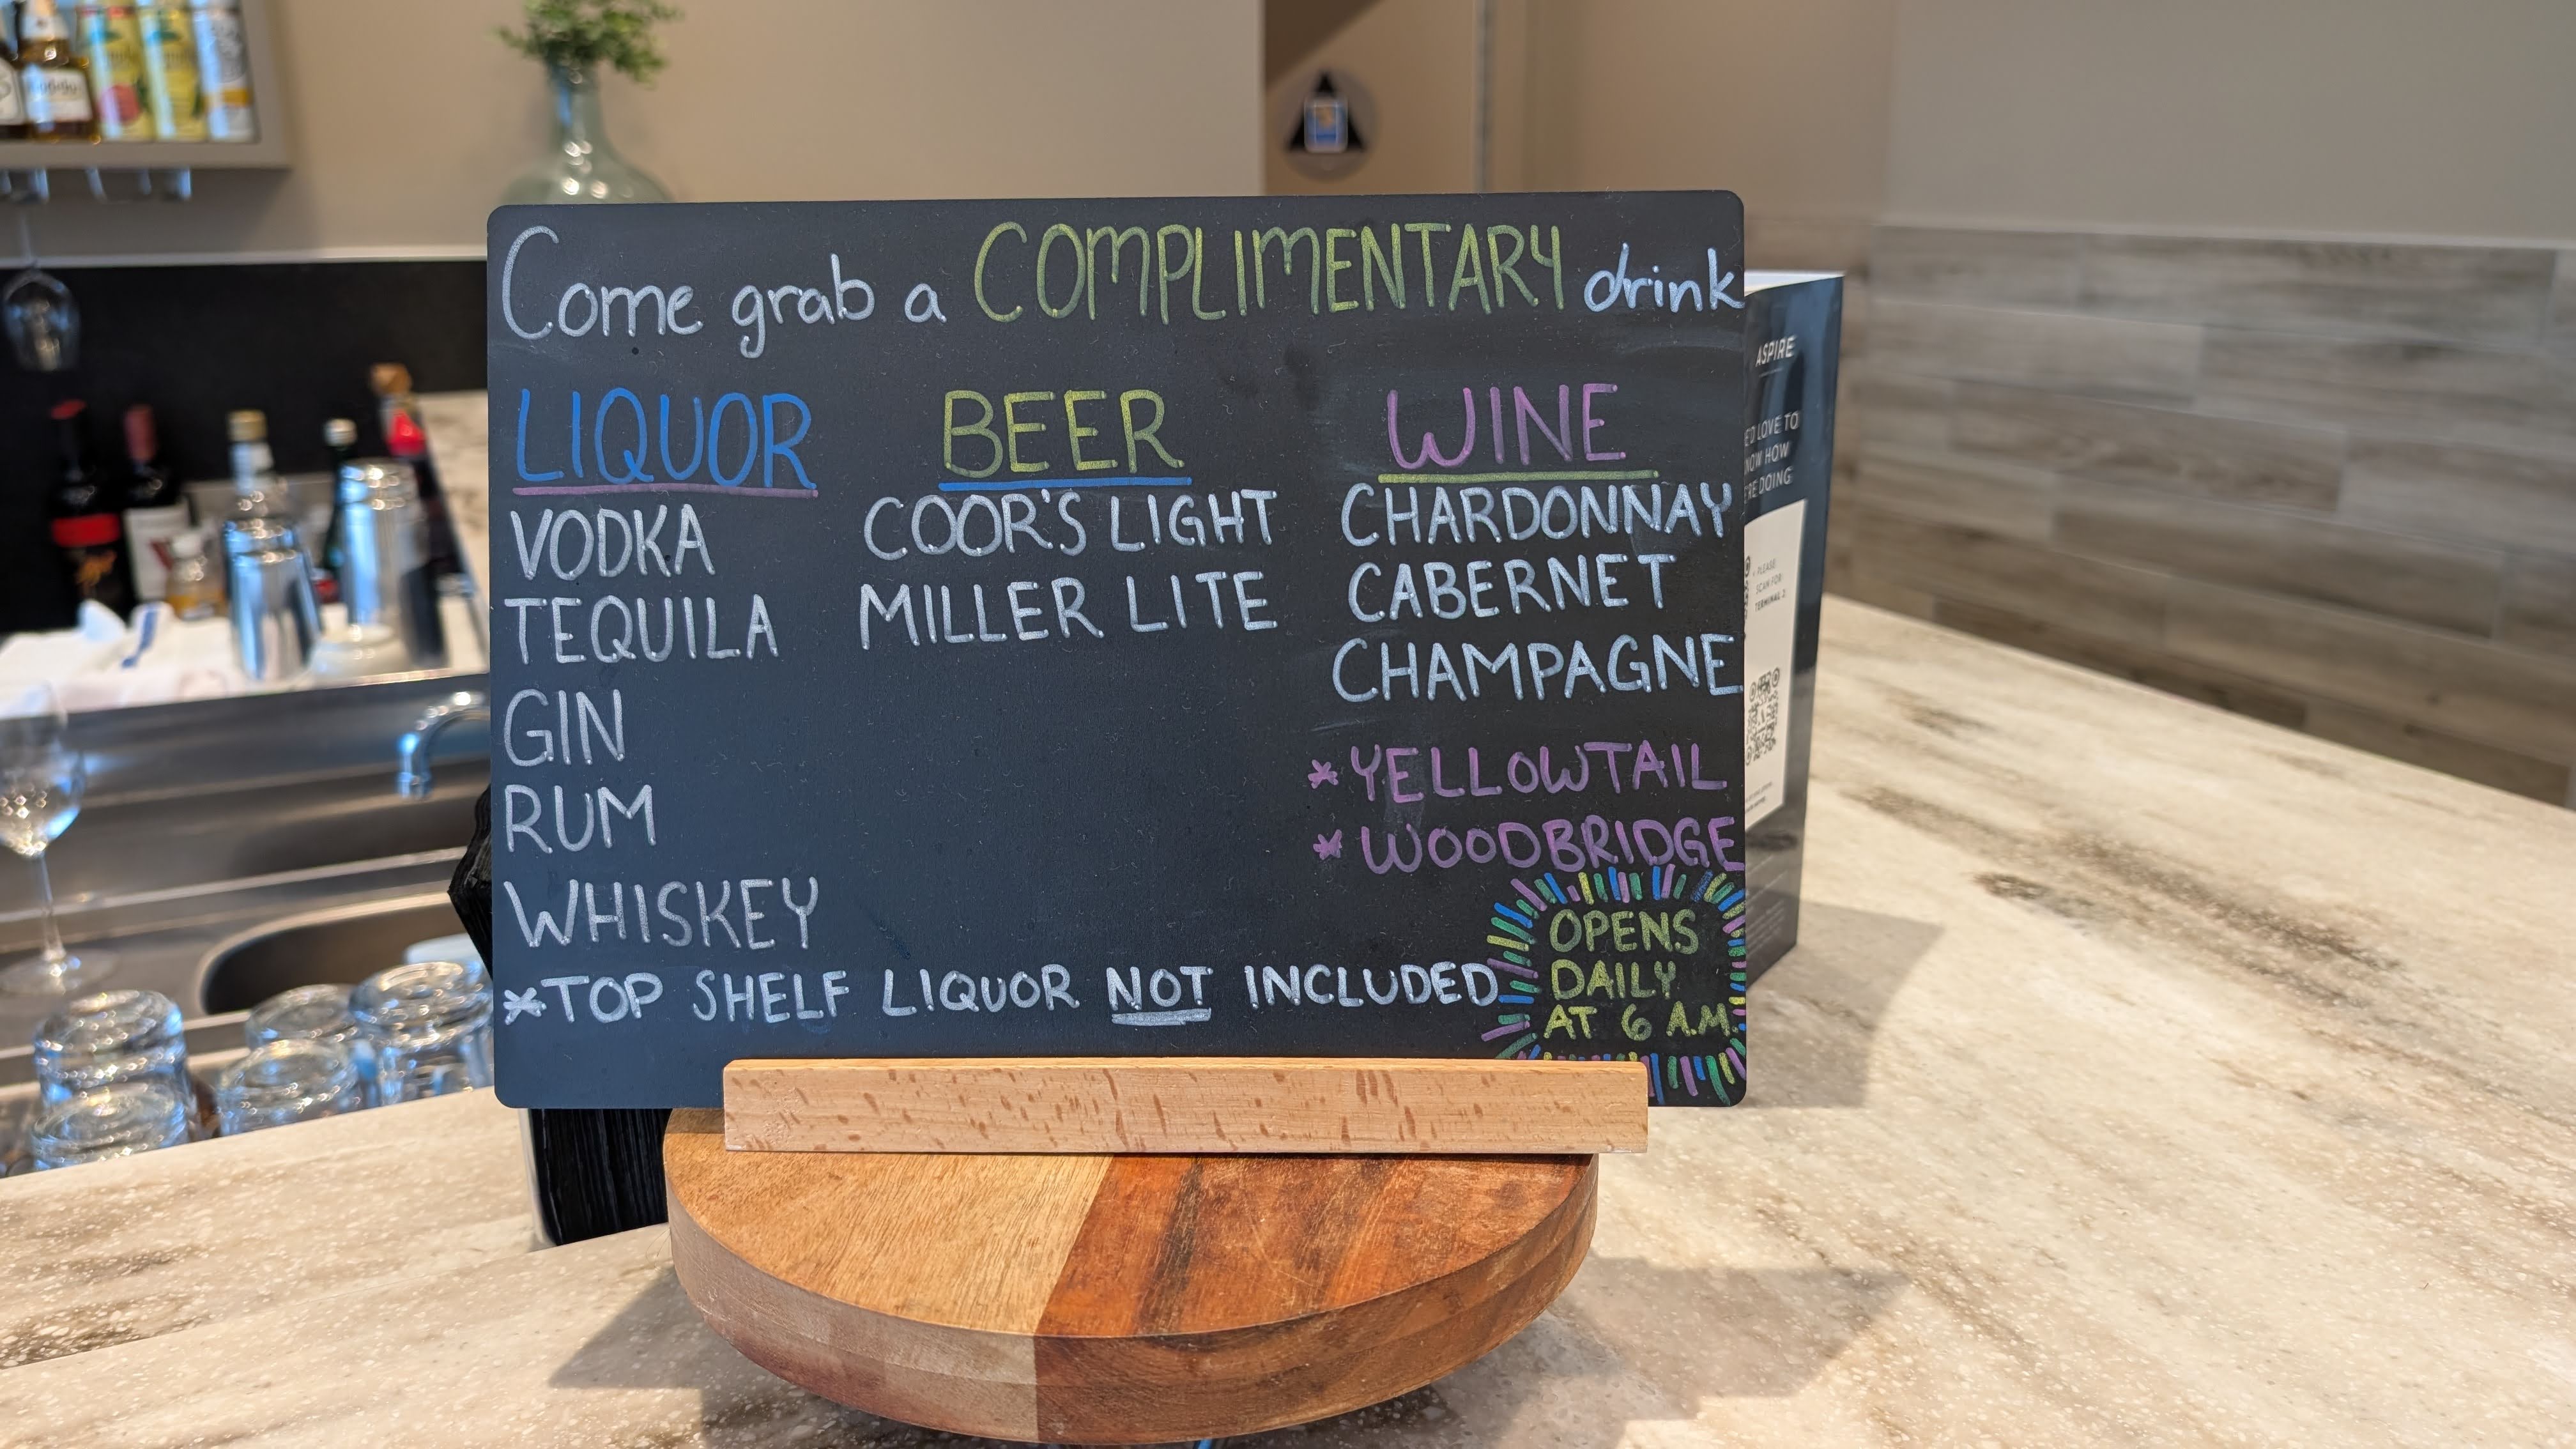 Come grab a COMPLIMENTARY drink
LIQUOR
VODKA
TEQUILA
GIN
RUM
WHISKEY
BEER
COOR'S LIGHT
MILLER LITE
WINE
CHARDONNAY
CABERNET
CHAMPAGNE
* YELLOWTAIL
* WOODBRIDGE
*TOP SHELF LIQUOR NOT INCLUDED
OPENS
DAILY
AT 6 A.M.
ASPIRE
LOVE TO
HOW
DOING
PLEASE
SCAN FOR
TERMINAL 2